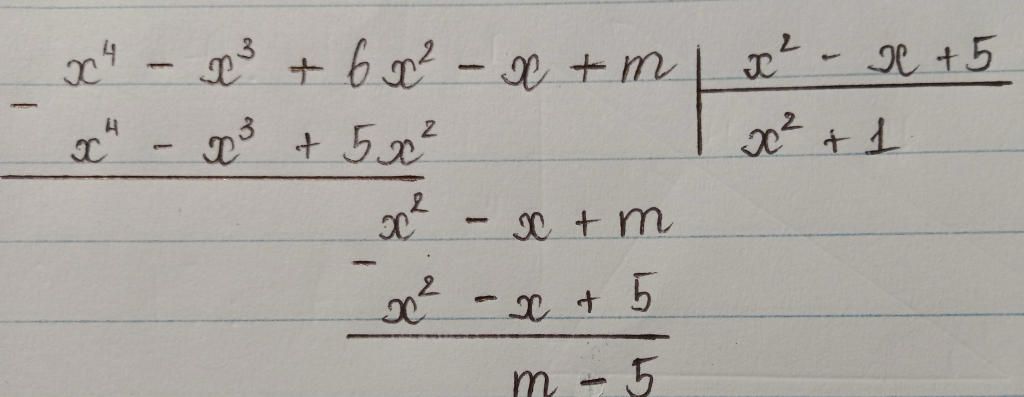 x⁴ - x³ + 6x² - x + m | x² - x + 5
-
x⁴ - x³ + 5x² | x² + 1
x² - x + m
-
x² - x + 5
m - 5